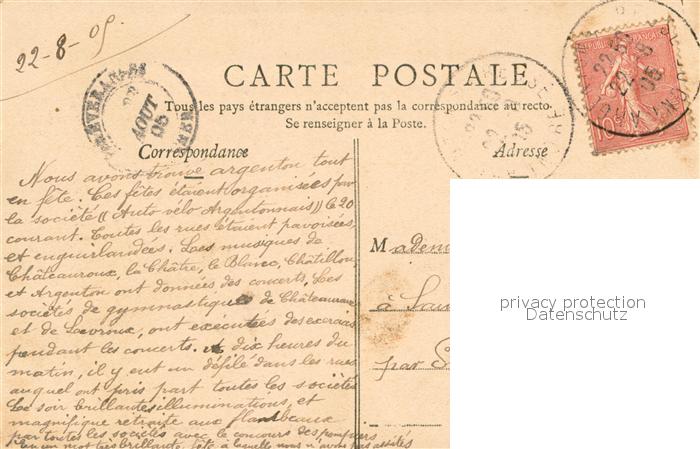 22-8-05
CARTE POSTALE
Tous les pays étrangers n'acceptent pas la correspondance au recto
Se renseigner à la Poste.
Correspondance
Adresse
AOUT
05
REPUBLIQUE FRANÇAISE
22 8
05
Nous avons trouvé argenton tout
en fête. Ces fêtes étaient organisées par
la société (( Auto vélo Argentonnais)) le 20
courant. Toutes les rues étaient pavoisées
et enguirlandées. Les musiques de
Châteauroux, la Châtre, le Blanc, Châtillon,
et Argenton ont données des concerts. Les
sociétés de gymnastique de Châteauroux
et de Levroux, ont exécutées des exercices
pendant les concerts. A dix heures du
matin, il y eut un défilé dans les rues
auquel ont pris part toutes les sociétés
Le soir brillantes illuminations, et
magnifique retraite aux flambeaux
par toutes les sociétés avec le concours des pompiers
En un mot très brillante fête à laquelle nous n'avons pas assistés
Madem
à
par
privacy protection
Datenschutz